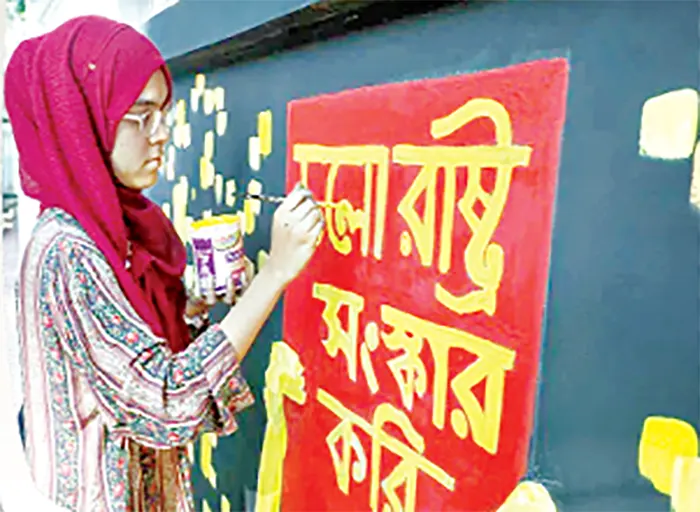 চলো রাষ্ট্র
সংস্কার
করি